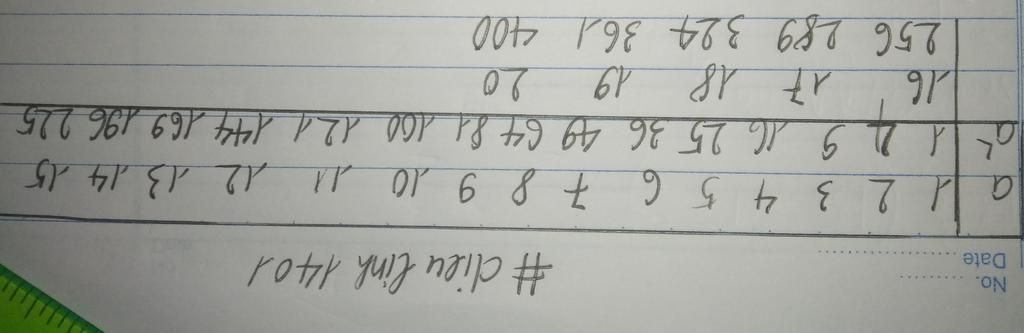 No.
Date
# dieu linh 1401
a 1 2 3 4 5 6 7 8 9 10 11 12 13 14 15
a² 1 4 9 16 25 36 49 64 81 100 121 144 169 196 225
16 17 18 19 20
256 289 324 361 400